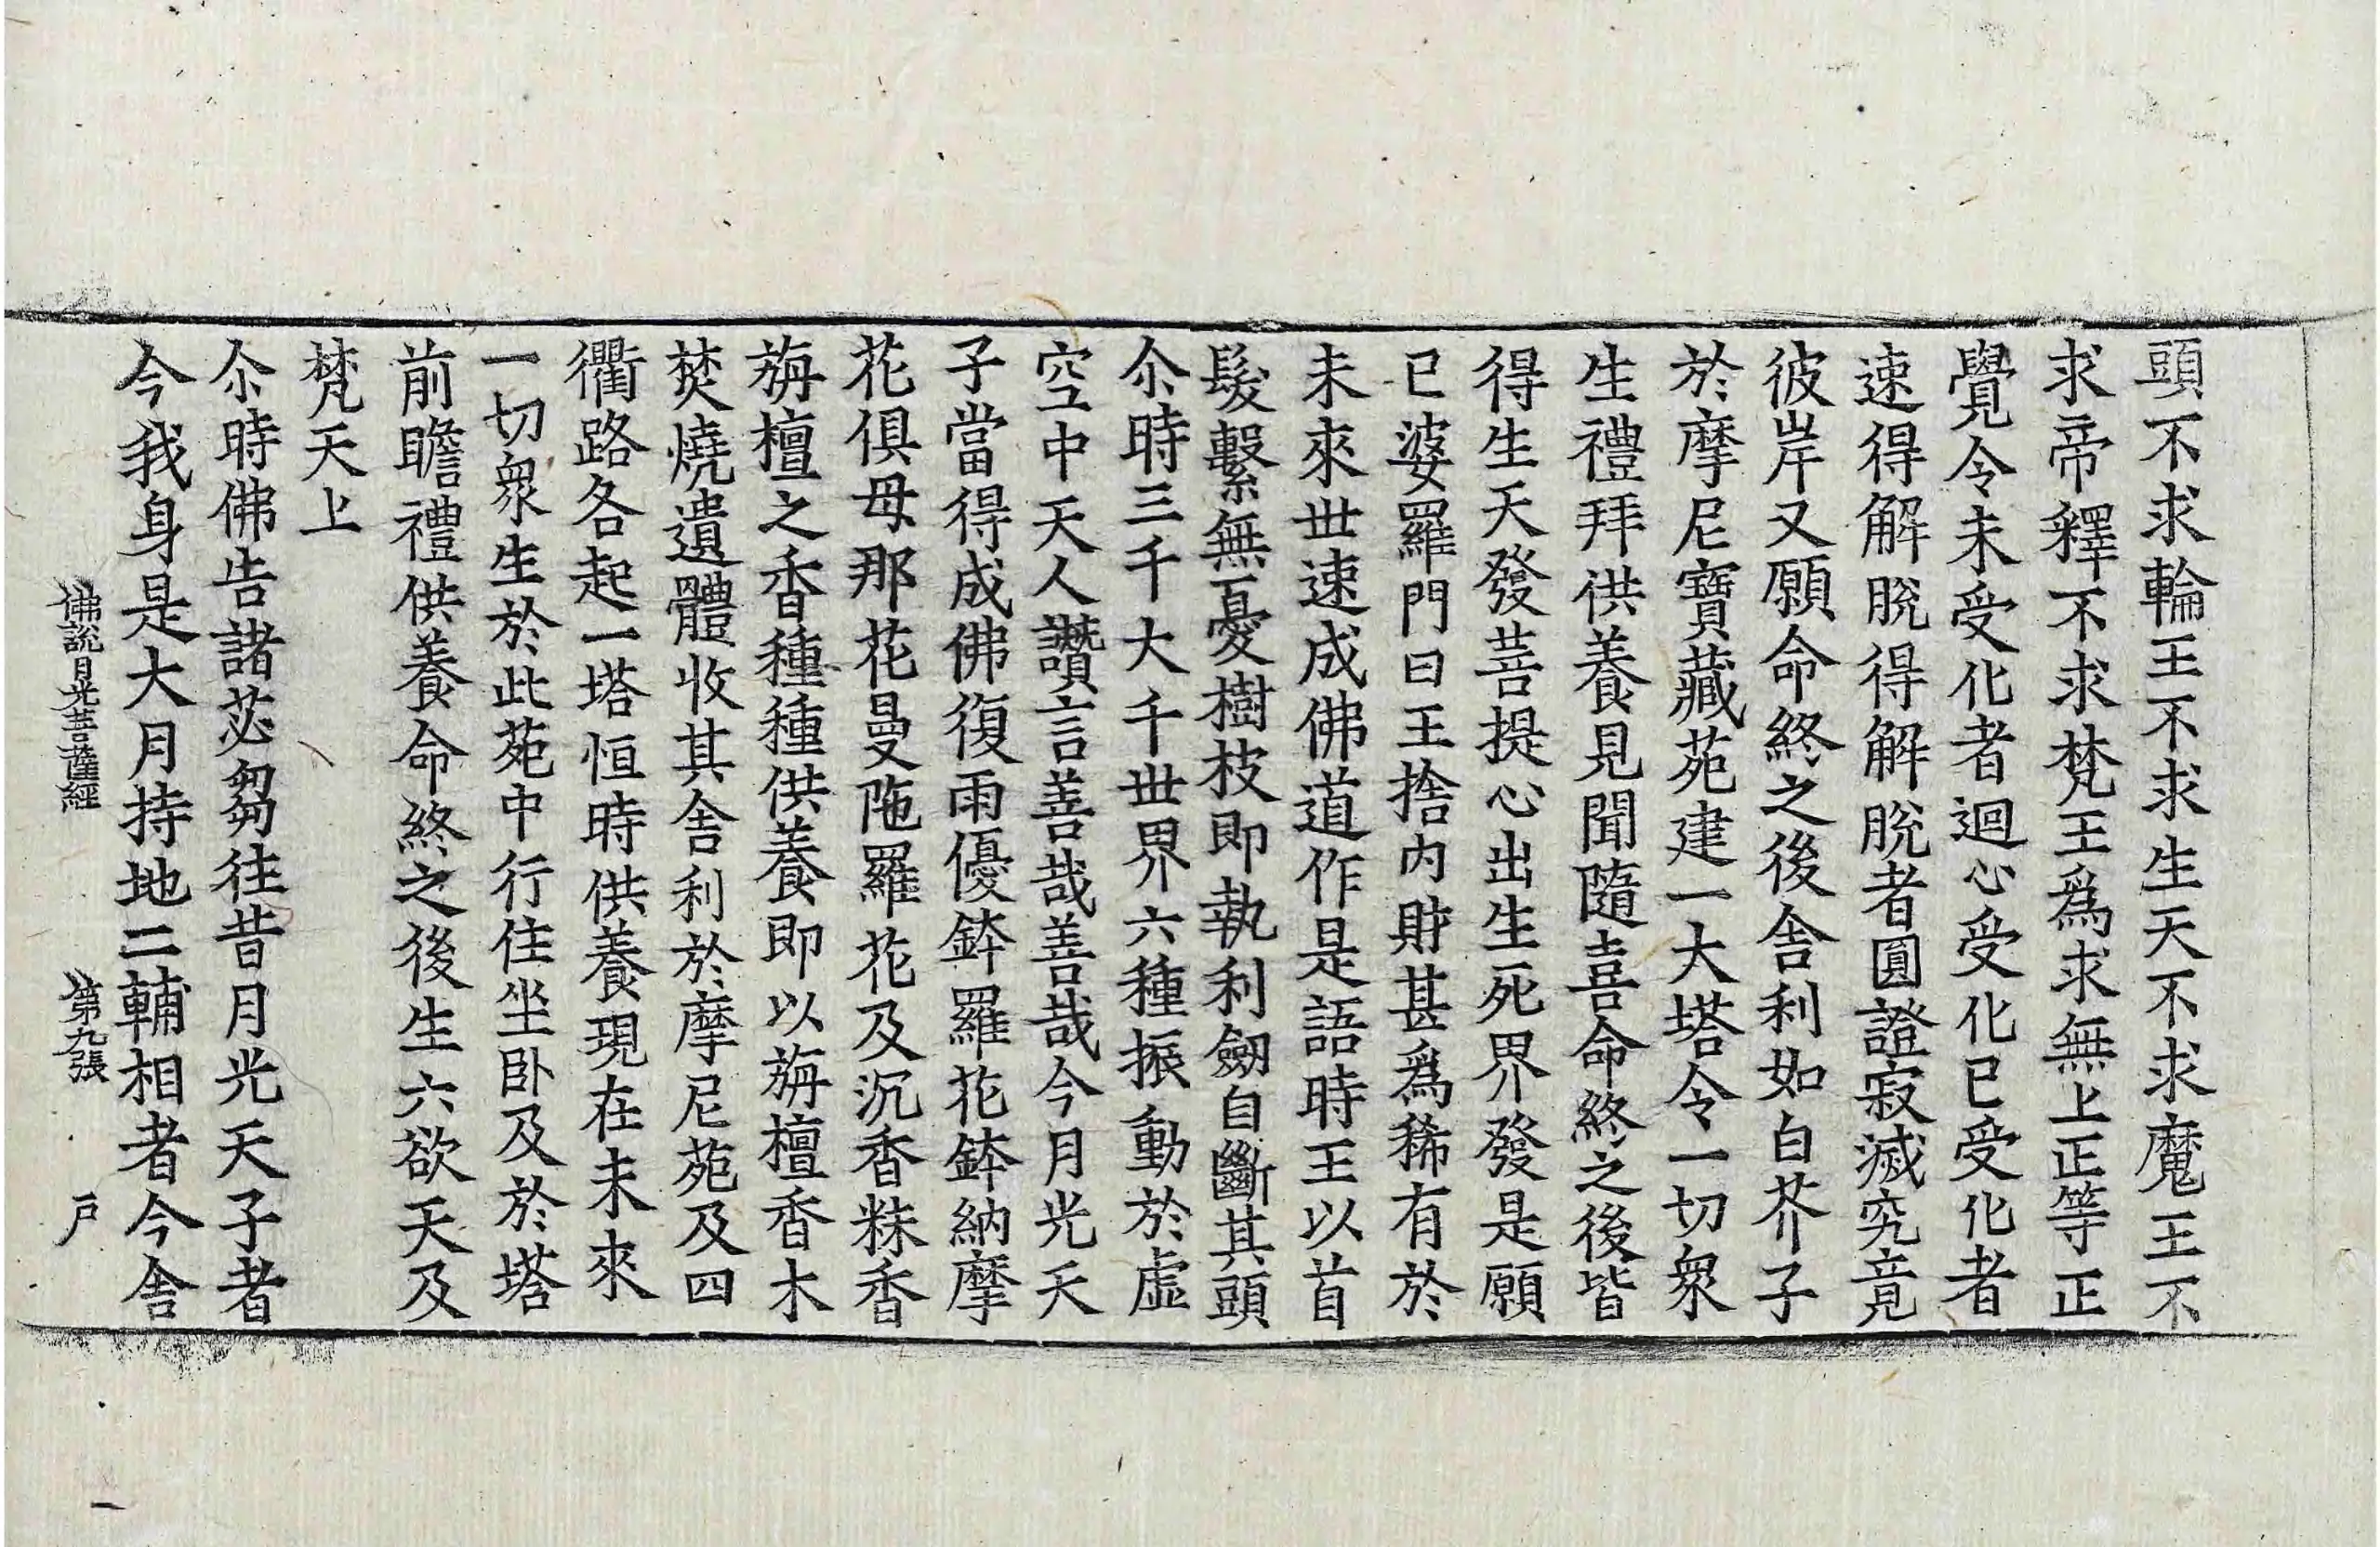 頭不求輪王不求生天不求魔王不
求帝釋不求梵王爲求無上正等正
覺令未受化者迴心受化已受化者
速得解脫得解脫者圓證寂滅究竟
彼岸又願命終之後舍利如白芥子
於摩尼寶藏苑建一大塔令一切衆
生禮拜供養見聞隨喜命終之後皆
得生天發菩提心出生死界發是願
已婆羅門曰王捨内財甚爲稀有於
未來世速成佛道作是語時王以首
髮繫無憂樹枝即執利劒自斷其頭
尒時三千大千世界六種振動於虛
空中天人讚言善哉善哉今月光天
子當得成佛復雨優鉢羅花鉢納摩
花俱母那花曼陁羅花及沉香粖香
旃檀之香種種供養即以旃檀香木
焚燒遺體收其舍利於摩尼苑及四
衢路各起一塔恒時供養現在未來
一切衆生於此苑中行住坐卧及於塔
前瞻禮供養命終之後生六欲天及
梵天上
尒時佛告諸苾芻往昔月光天子者
今我身是大月持地二輔相者今舍
佛說月光菩薩經　第九張　戸